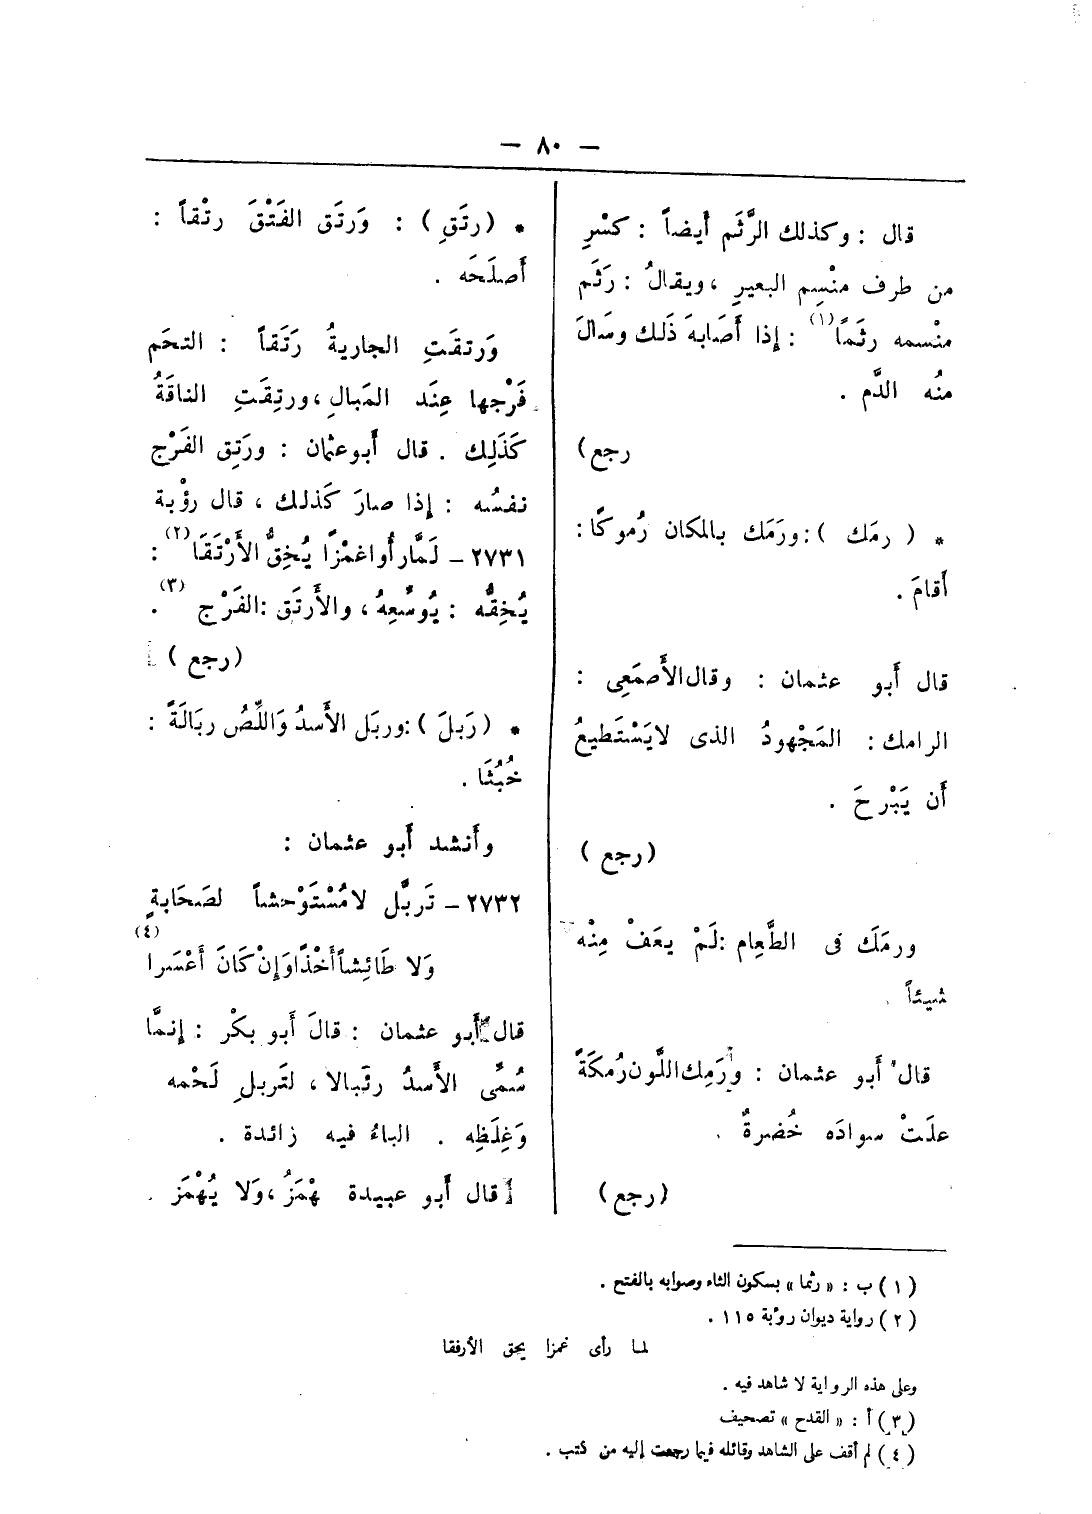 — ٨٠ —
قال : وكذلك الرَّثَم أَيضاً : كسْرِ
من طرف منْسِم البعيرِ ، ويقالُ : رَثَم
منْسمه رثَمًا (١) : إذا أَصَابهَ ذَلك وسَالَ
منُه الدَّم .
رجع)
* ( رمَك ) : ورَمَك بالمكان رُموكًا :
أَقامَ .
قال أَبو عثمان : وقال الأَصمَعِى :
الرامك : المَجْهودُ الذى لايَسْتَطيعُ
أَن يَبْرحَ .
(رجع )
ورمَلَك فى الطَّعِام : لَمْ يعَفْ مِنْه
شيئاً .
قال أَبو عثمان : ورَمِك اللون رُمكَةً
علَتْ سوادَه خُضرةٌ .
(رجع )
* (رتَقِ ) : وَرتَق الفَتْقَ رتْقاً :
أَصلَحَه .
وَرتقَتِ الجاريةُ رَتَقاً : التحَم
فَرْجها عِنَد المَبالِ ، ورتِقَتِ الناقَةُ
كَذَلِك . قال أَبوعثمان : ورَتِق الفَرْج
نفسُه : إذا صارَ كَذلك ، قال رؤْبة
٢٧٣١ – لَمَّار أُواغمْزًا يُخِقُّ الأَرْتَقَا (٢) :
يُخِقُّه : يُوسِّعِهُ ، والأَرتَق : الفَرْج (٣) .
(رجع )
* (رَبلَ ) : وربَل الأَسدُ وَاللِّصُ ربَالَةً :
خُبثَا .
وأَنشد أَبو عثمان :
٢٧٣٢ – تَربَّل لامُسْتَوْحشاً لصَحَابةٍ
وَلا طَائِشاً أَخْذًا وَإنْ كَانَ أَعْسَرا (٤)
قال أَبو عثمان : قالَ أَبو بكْر : إنمَّا
سُمِّى الأَسدُ رئبالا ، لتَربلِ لَحْمه
وَغِلَظِه . الباءُ فيه زائدة .
قال أَبو عبيدة هْمَزُ ، وَلا يُهْمَز .
(١) ب : « رثما » بسكون الثاء وصوابه بالفتح .
(٢) رواية ديوان روبة ١١٥ .
لما رأى غمزا يحق الأرفقا
وعلى هذه الرواية لا شاهد فيه .
(٣) أ : « القدح » تصحيف
(٤) لم أقف على الشاهد وقائله فيما رجعت إليه من كتب .